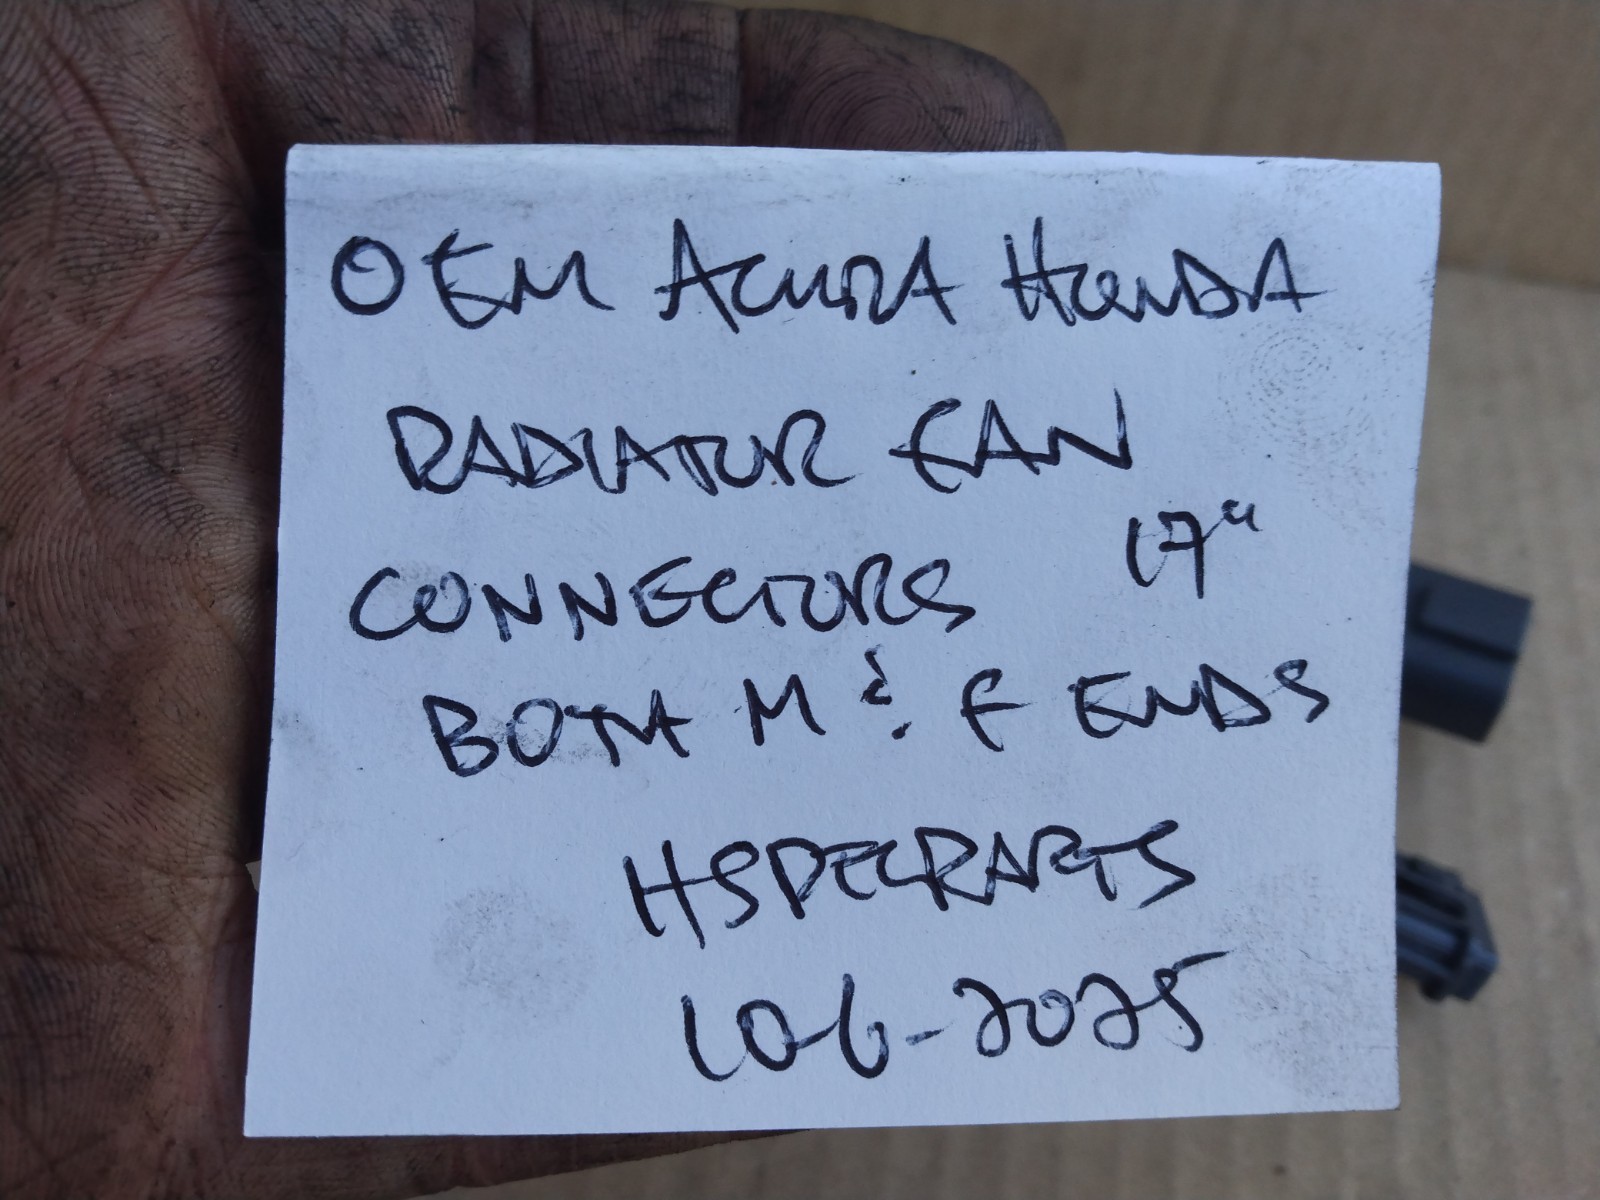 OEM ACURA HONDA
RADIATOR FAN
17"
CONNECTORS
BOTH M & F ENDS
HSPECRPARTS
10-6-2025